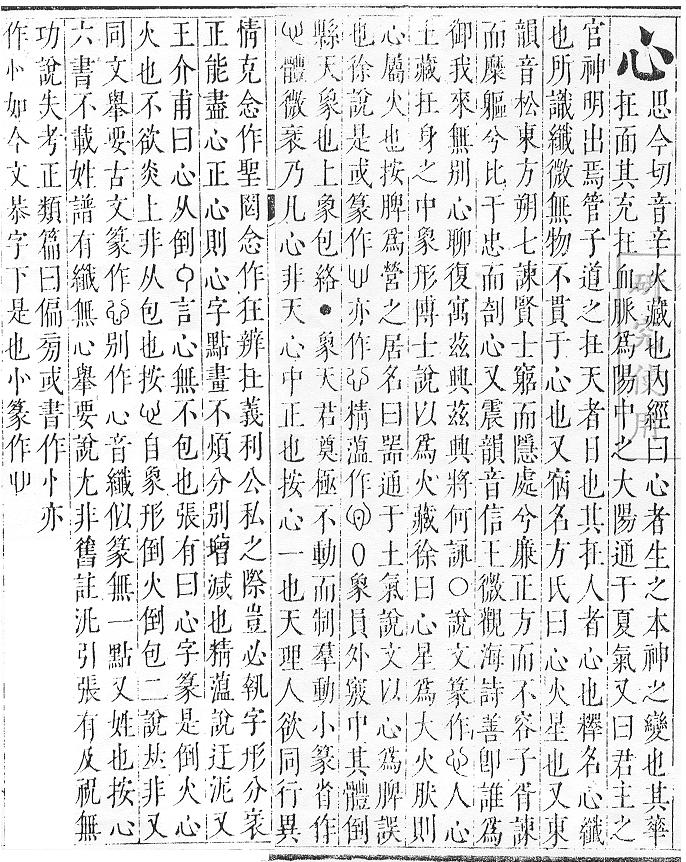 心
思今切音辛火藏也内經曰心者生之本神之變也其華
在面其充在血脈爲陽中之太陽通于夏氣又曰君主之
官神明出焉管子道之在天者日也其在人者心也釋名心纖
也所識纖微無物不貫于心也又宿名方氏曰心火星也又東
韻音松東方朔七諫賢士窮而隱處兮廉正方而不容子胥諫
而糜軀兮比干忠而剖心又震韻音信王微觀海詩善卽誰爲
御我來無别心聊復寓茲興茲興將何訴○說文篆作人心
土藏在身之中象形博士說以爲火藏徐曰心星爲大火肰則
心屬火也按脾爲營之居名曰器通于土氣說文以心爲脾誤
也徐說是或篆作亦作精薀作象員外竅中其體倒
縣天象也上象包絡●象天君奠極不動而制羣動小篆省作
體微衺乃凡心非天心中正也按心一也天理人欲同行異
情克念作聖罔念作狂辨在義利公私之際豈必執字形分衺
正能盡心正心則心字點畫不煩分别增減也精薀說迂泥又
王介甫曰心从倒言心無不包也張有曰心字篆是倒火心
火也不欲炎上非从包也按自象形倒火倒包二說𠀤非又
同文舉要古文篆作别作心音纖似篆無一點又姓也按心
六書不載姓譜有纖無心舉要說尤非舊註泥引張有及祝無
功說失考正類篇曰偏旁或書作忄亦
作㣺如今文恭字下是也小篆作